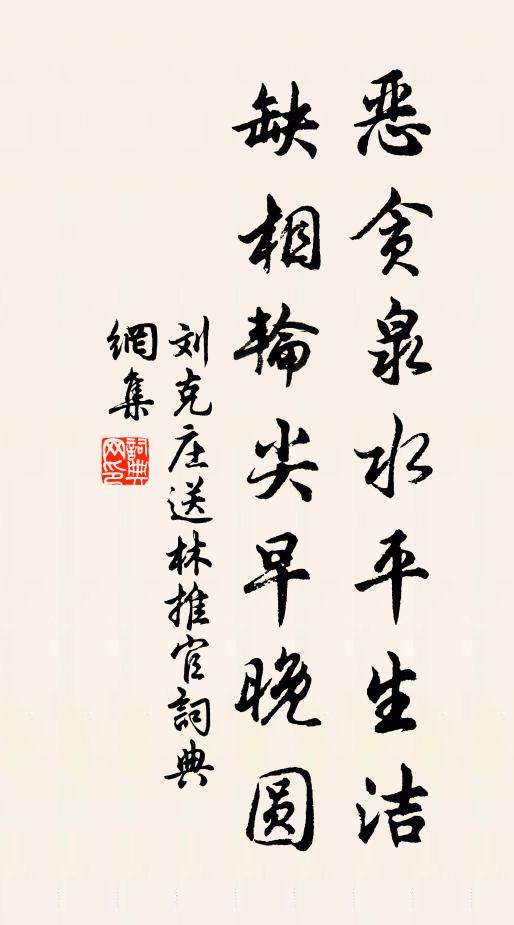 恶贪泉水平生洁
缺相輪尖早晚圆
刘克庄送林推官詞典
網集
詞典
网印